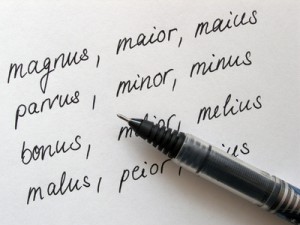 magnus, maior, maius
parvus, minor, minus
bonus, melior, melius
malus, peior,